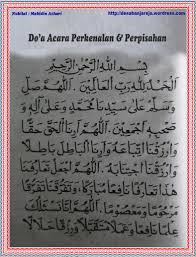 Nahdlat : Mahidin Azhari
http://desabanjarejo.wordpress.com
Do'a Acara Perkenalan & Perpisahan
بِسْمِ اللهِ الرَّحْمٰنِ الرَّحِيْمِ
اَلْحَمْدُ لِلّٰهِ رَبِّ الْعَالَمِيْنَ. اَللّٰهُمَّ صَلِّ
وَسَلِّمْ عَلٰى سَيِّدِنَا مُحَمَّدٍ وَعَلٰى اٰلِهِ وَ
صَحْبِهِ اَجْمَعِيْنَ. اَللّٰهُمَّ اَرِنَا الْحَقَّ حَقًّا
وَارْزُقْنَا اتِّبَاعَهُ. اَللّٰهُمَّ اَرِنَا الْبَاطِلَ بَاطِلًا
وَارْزُقْنَا اجْتِنَابَهُ. اَللّٰهُمَّ اجْعَلْ تَعَارُفَنَا
هٰذَا تَعَارُفًا وَتَفَرُّقَنَا تَفَرُّقًا
مَرْحُوْمًا وَمَعْصُوْمًا
عِلْمًا نَافِعًا وَعَمَلًا مُتَقَبَّلًا وَرِزْقًا حَلَالًا